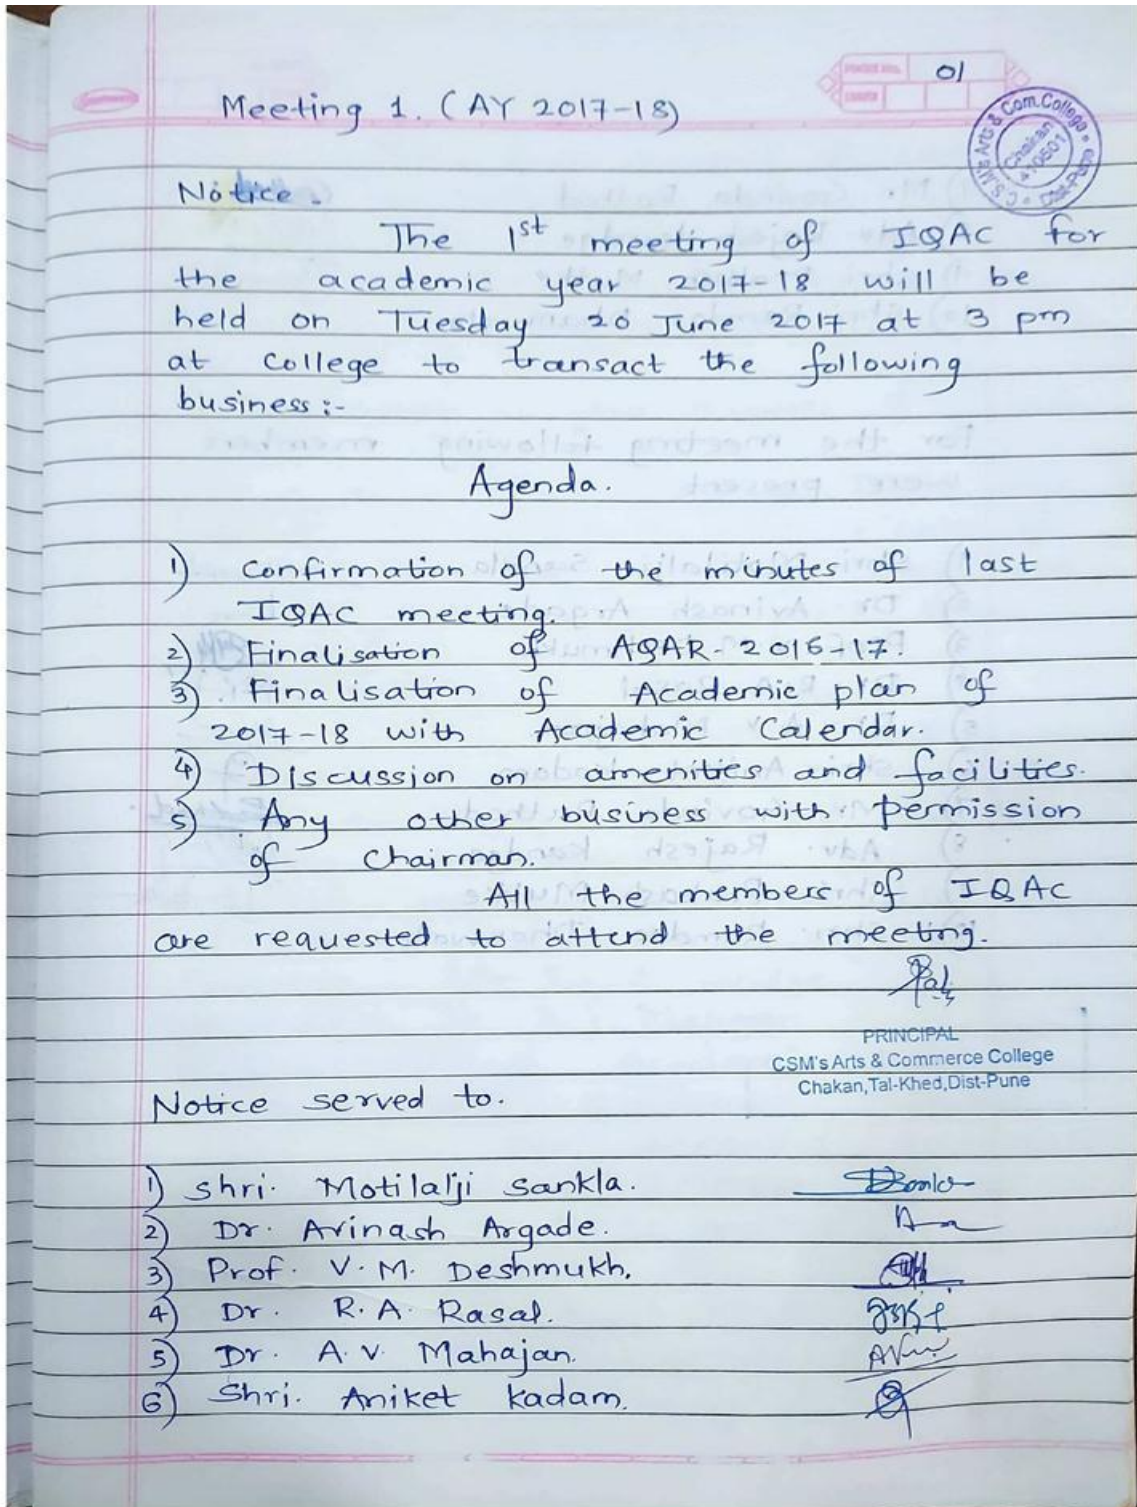 01
Meeting 1. (AY 2017-18)
C.S.M's Arts & Com. College
Chakan
410501
Dist-Pune
Notice.
The 1st meeting of IQAC for
the academic year 2017-18 will be
held on Tuesday 20 June 2017 at 3 pm
at college to transact the following
business:-
Agenda.
1) Confirmation of the minutes of last
IQAC meeting.
2) Finalisation of AQAR-2016-17.
3) Finalisation of Academic plan of
2017-18 with Academic Calendar.
4) Discussion on amenities and facilities.
5) Any other business with permission
of Chairman.
All the members of IQAC
are requested to attend the meeting.
PRINCIPAL
CSM's Arts & Commerce College
Chakan,Tal-Khed,Dist-Pune
Notice served to.
1) Shri. Motilalji Sankla.
2) Dr. Avinash Argade.
3) Prof. V.M. Deshmukh.
4) Dr. R.A. Rasal.
5) Dr. A.V. Mahajan.
6) Shri. Aniket Kadam.